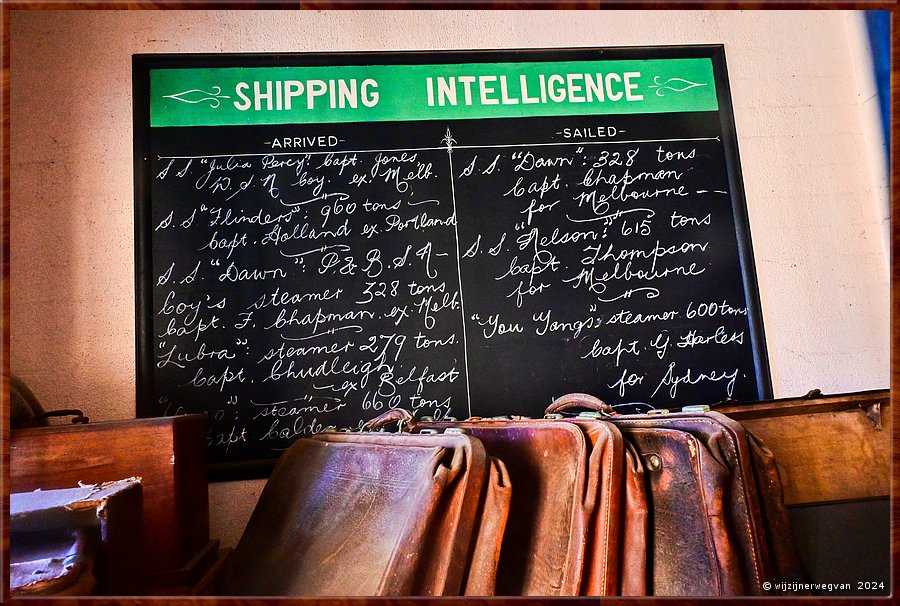 SHIPPING INTELLIGENCE
-ARRIVED-
S.S. "Julia Percy": Capt. Jones,
W. S. N Coy. ex. Melb.
S.S "Flinders": 960 tons
Capt. Holland ex Portland
S.S. "Dawn": P. & B. S. N-
Coy's steamer 328 tons,
Capt. F. Chapman ex. Melb.
"Lubra": steamer 279 tons.
Capt. Chudleigh
ex Belfast
steamer 660 tons
Capt
-SAILED-
S.S. "Dawn": 328 tons
Capt. Chapman
for Melbourne --
S.S. "Nelson": 615 tons
Capt Thompson
for Melbourne
"You Yangs": steamer 600 tons
Capt. G. Harless
for Sydney.
© wijzijnerwegvan 2024